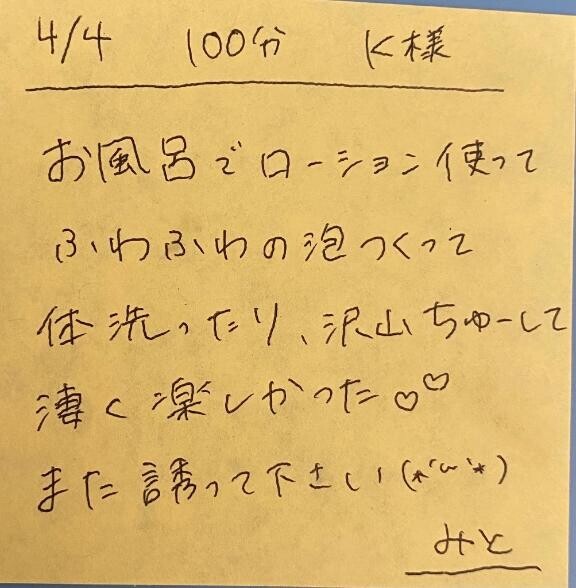 4/4 100分 K様
お風呂でローション使って
ふわふわの泡つくって
体洗ったり、沢山ちゅーして
凄く楽しかった♡♡
また誘って下さい(*'ω'*)
みと